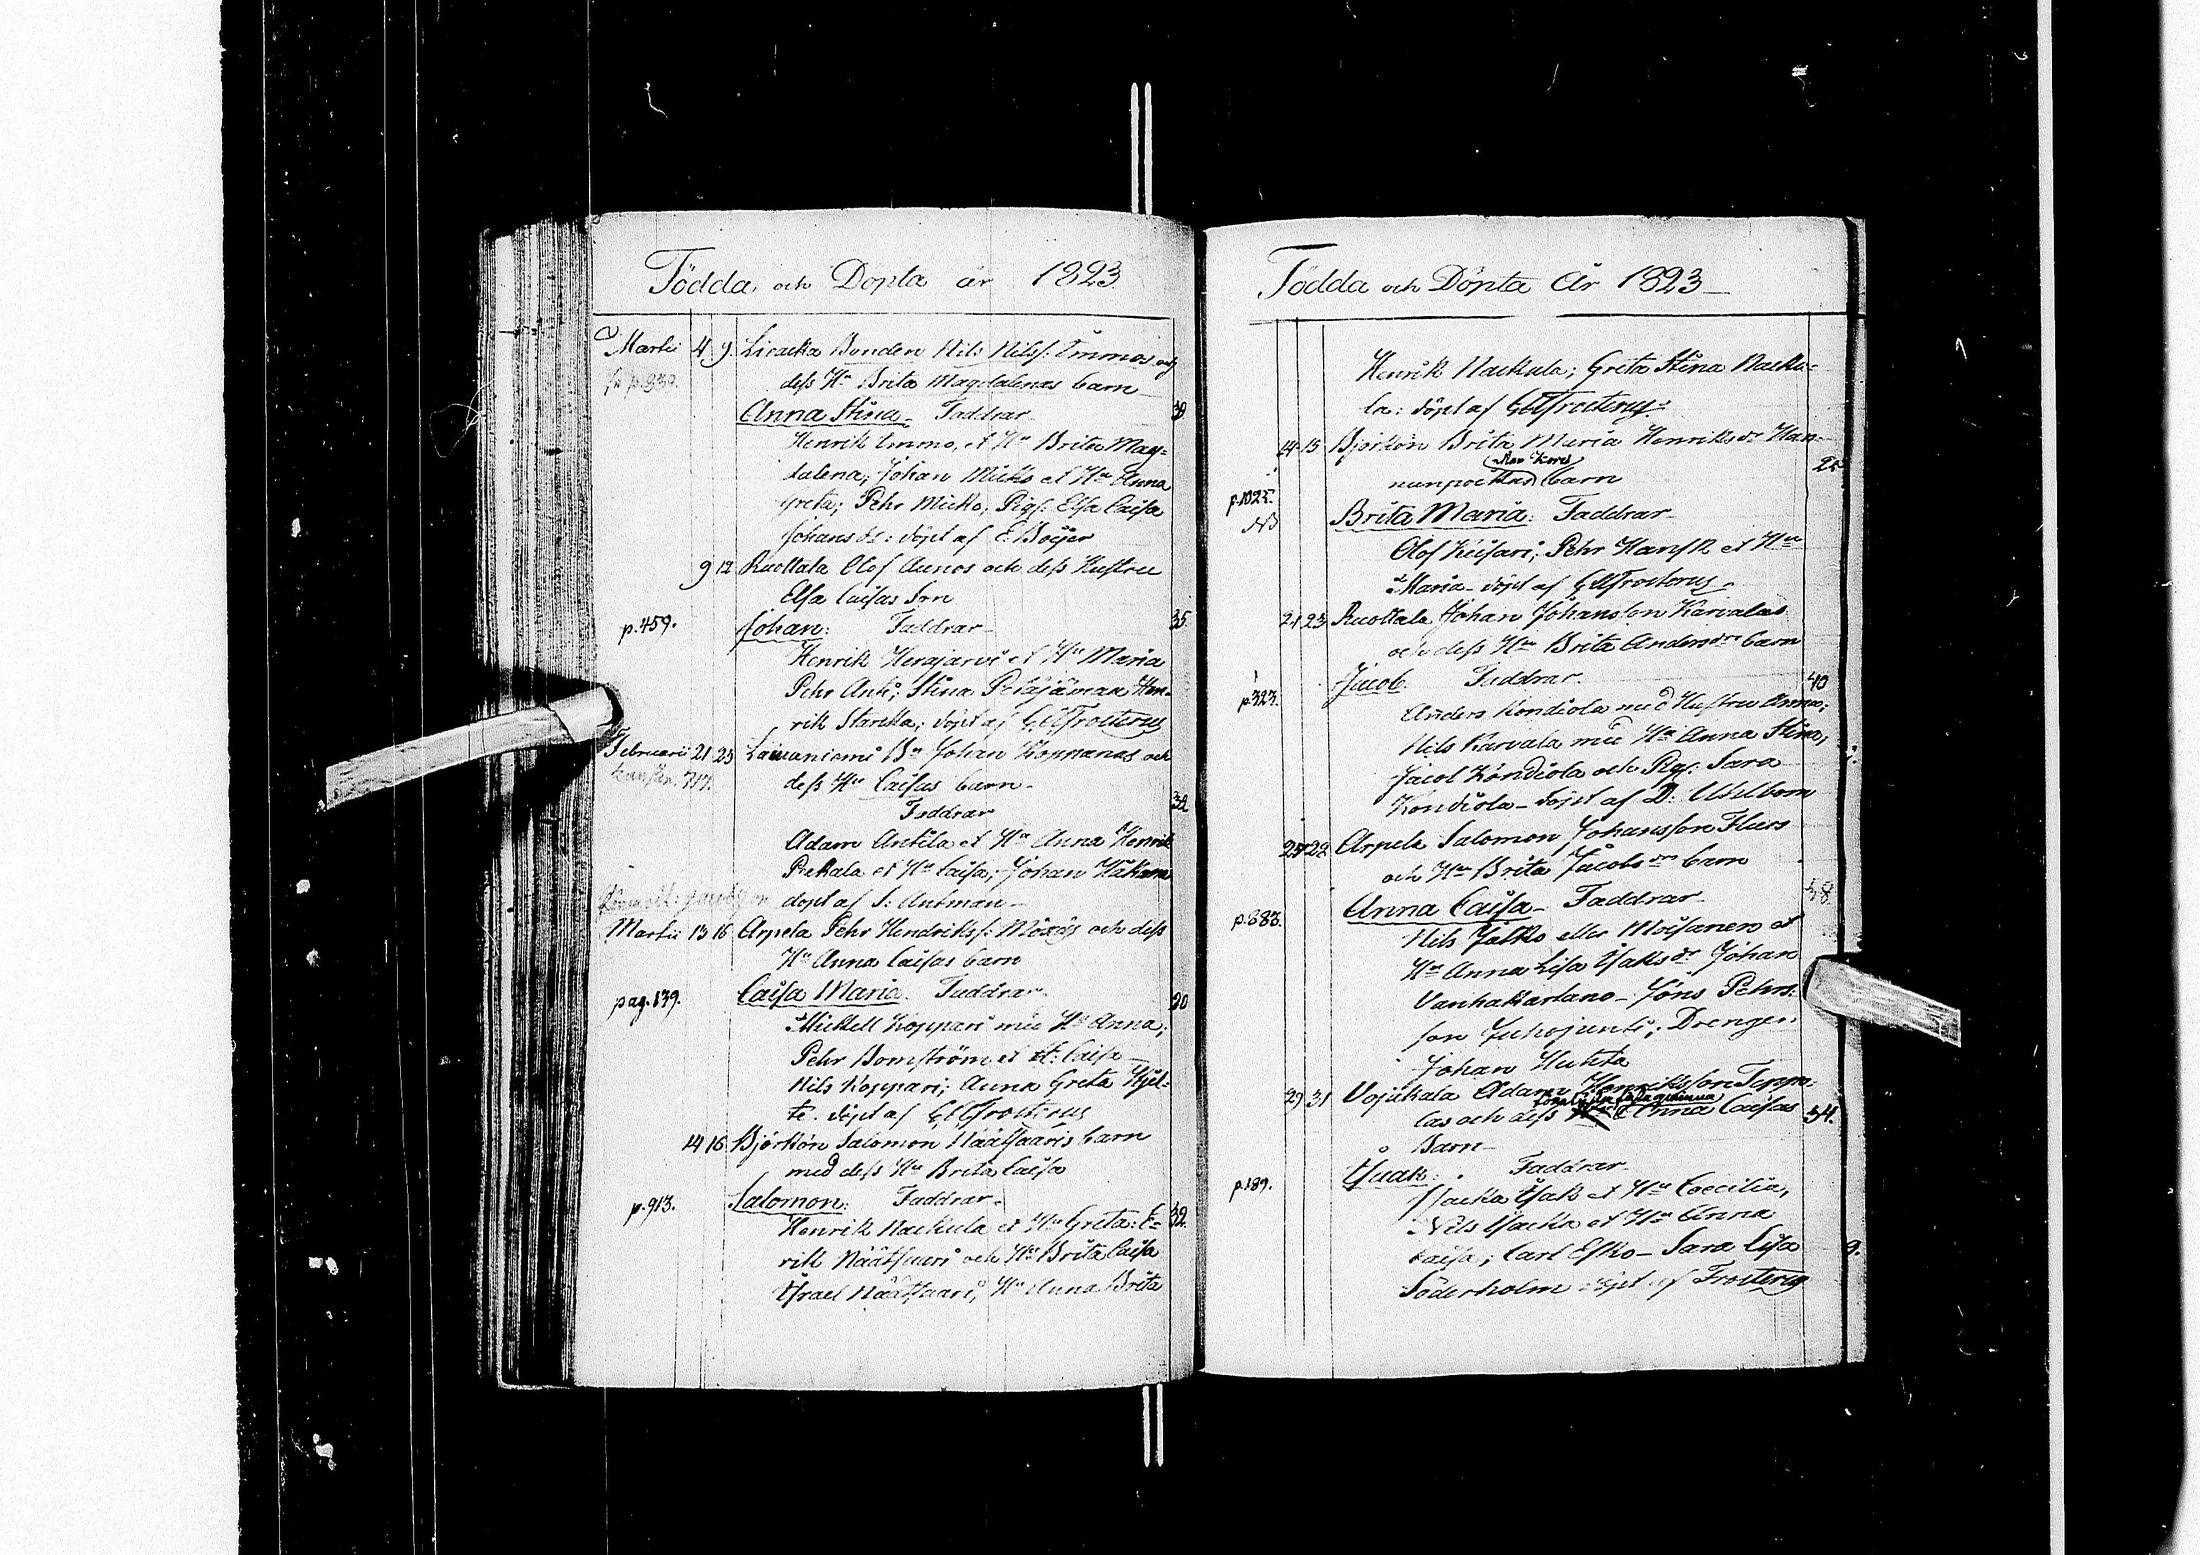 Födda och Döpta år 1823
Martii 4 9 Liedakka Bonden Nils Nilss: Emmos och
dess Hu Brita Magdalenas barn
Anna Stina. Faddrar 39
Henrik Emmo, et Hu Brita Mag-
dalena; Johan Micko et Hu Anna
Greta; Pehr Micko; Pigs: Elsa Caisa
Johansdr: döpt af E. Böijer
9 12 Ruottala Olof Aunos och dess Hustru
Elsa Caisas Son
p. 459. Johan: Faddrar 35.
Henrik Herajärvi et Hu Maria
Pehr Anti; Stina Petäjämaa Hen-
rik Starcka; döpt af Frosterus
Februarii 21 23 Laivaniemi Bn Johan Kopmanas och
dess Hu Caisas barn
Faddrar 32
Adam Antila et Hu Anna Henrik
et Hu Caisa; Johan
döpt af S: Antman
Martii 13 16 Arpela Pehr Hendrikss: och dess
Hu Anna Caisas barn
pag. 139. Caisa Maria. Faddrar. 20
Mickell Koppari med Hu Anna;
Pehr Bomström et H: Caisa
Nils Koppari; Anna Greta Hjel-
te. döpt af Frosterus
14 16 Björkön Salomon Näätsaaris barn
med dess Hu Brita Caisa
p. 913. Salomon: Faddrar. 32.
Henrik Nackula et Hu Greta: E-
rik Näätsaari och Hu Brita Caisa
Israel Näätsaari; Hu Anna Brita
Födda och Döpta År 1823
Henrik Nackula; Greta Stina Nacku-
la: döpt af Frosterus
14 15 Björkön Brita Maria Henriksdr Han-
barn
p. 1025. NB Brita Maria: Faddrar
Olof Kuisari; Pehr Hansk et Hu
Maria döpt af Frosterus
21 23 Ruottala Johan Johansson Karvalas
och dess Hu Brita Andersdrs barn
p. 323. Jacob. Faddrar. 40
Anders Kondiola med Hustru Anna;
Nils Karvala med Hu Anna Stina;
Jacob Kondiola och Pig: Sara
Kondiola döpt af D: Uhlbom
28 Arpela Salomon Johansson
och Hu Brita Jacobsdrs barn
p. 883. Anna Caisa Faddrar 38
Nils Jatko eller Moisanen et
Hu Anna Lisa Isaksdr Johan
Vanhatartano Jöns Pehrs-
son Juhojunti; Drengen
Johan Huhta
29 31 Vojakala Adam Henriksson
las och dess Anna Caisas 34.
Barn
p. 189. Isaak: Faddrar
Isak et Hu Coecilia,
Nils et Hu Anna
Caisa; Carl Esko Sara Lisa
Söderholm döpt af Frosterus